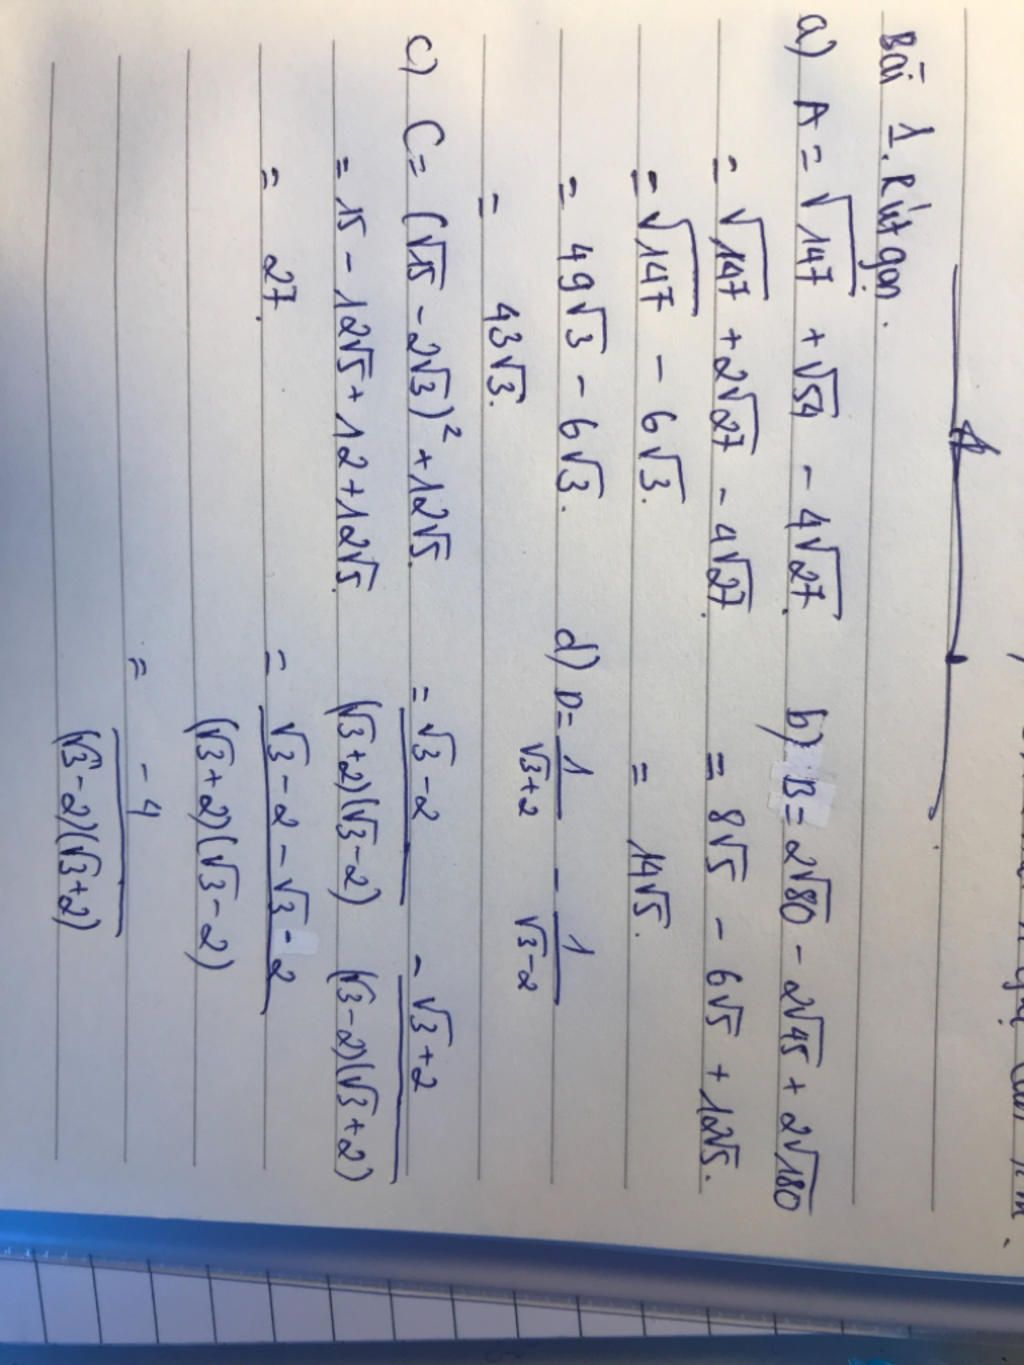 Bài 1. Rút gọn.
a) A = √147 + √54 - 4√27.
= √147 + 2√27 - 4√27.
= √147 - 6√3.
= 49√3 - 6√3.
= 43√3.
b) B = 2√80 - 2√45 + 2√180
= 8√5 - 6√5 + 12√5.
= 14√5.
c) C = (√15 - 2√3)² + 12√5.
= 15 - 12√5 + 12 + 12√5.
= 27.
d) D = 1/(√3+2) - 1/(√3-2)
= (√3-2)/((√3+2)(√3-2)) - (√3+2)/((√3-2)(√3+2))
= (√3-2-√3-2)/((√3+2)(√3-2))
= -4/((√3-2)(√3+2))